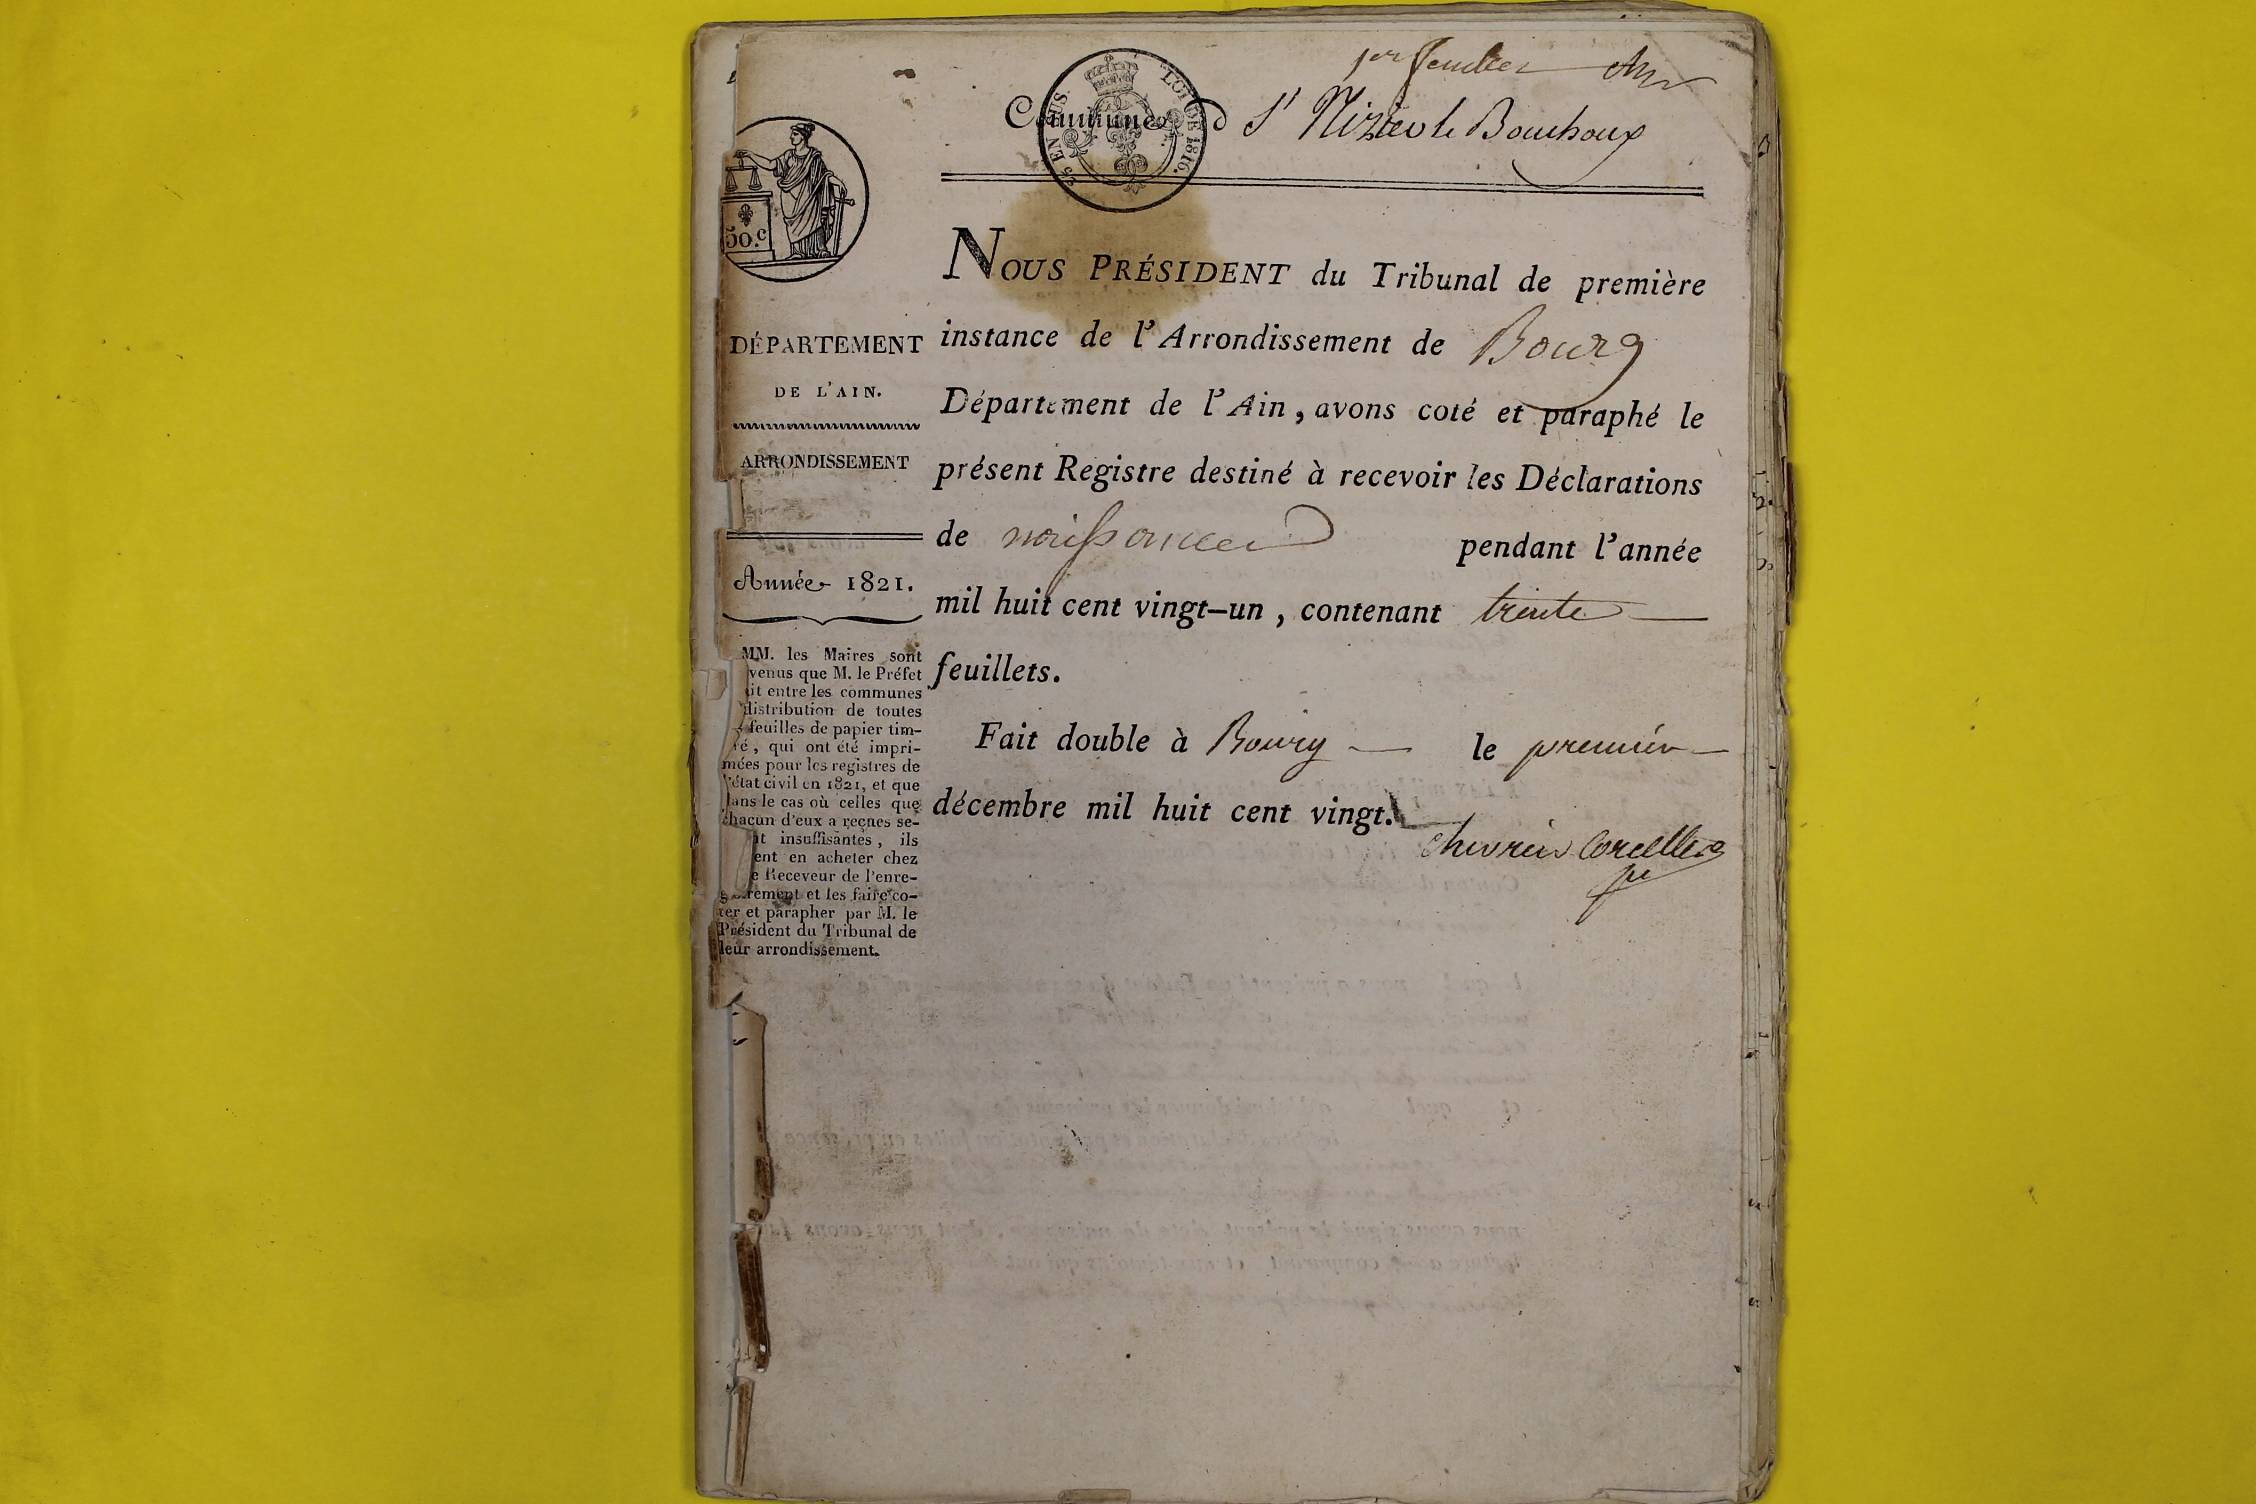 1er feuillet
Commune d St Nizier le Bouchoux
25 EN SUS.
LOI DE 1816.
50.c
DÉPARTEMENT
DE L'AIN.
ARRONDISSEMENT
Année 1821.
MM. les Maires sont
venus que M. le Préfet
it entre les communes
distribution de toutes
feuilles de papier tim-
é, qui ont été impri-
mées pour les registres de
l'état civil en 1821, et que
dans le cas où celles que
chacun d'eux a reçues se-
nt insuffisantes, ils
ent en acheter chez
e Receveur de l'enre-
gistrement et les faire co-
ter et parapher par M. le
Président du Tribunal de
leur arrondissement.
NOUS PRÉSIDENT du Tribunal de première
instance de l'Arrondissement de Bourg
Département de l'Ain, avons coté et paraphé le
présent Registre destiné à recevoir les Déclarations
de naissances pendant l'année
mil huit cent vingt-un, contenant trente
feuillets.
Fait double à Bourg le premier
décembre mil huit cent vingt.